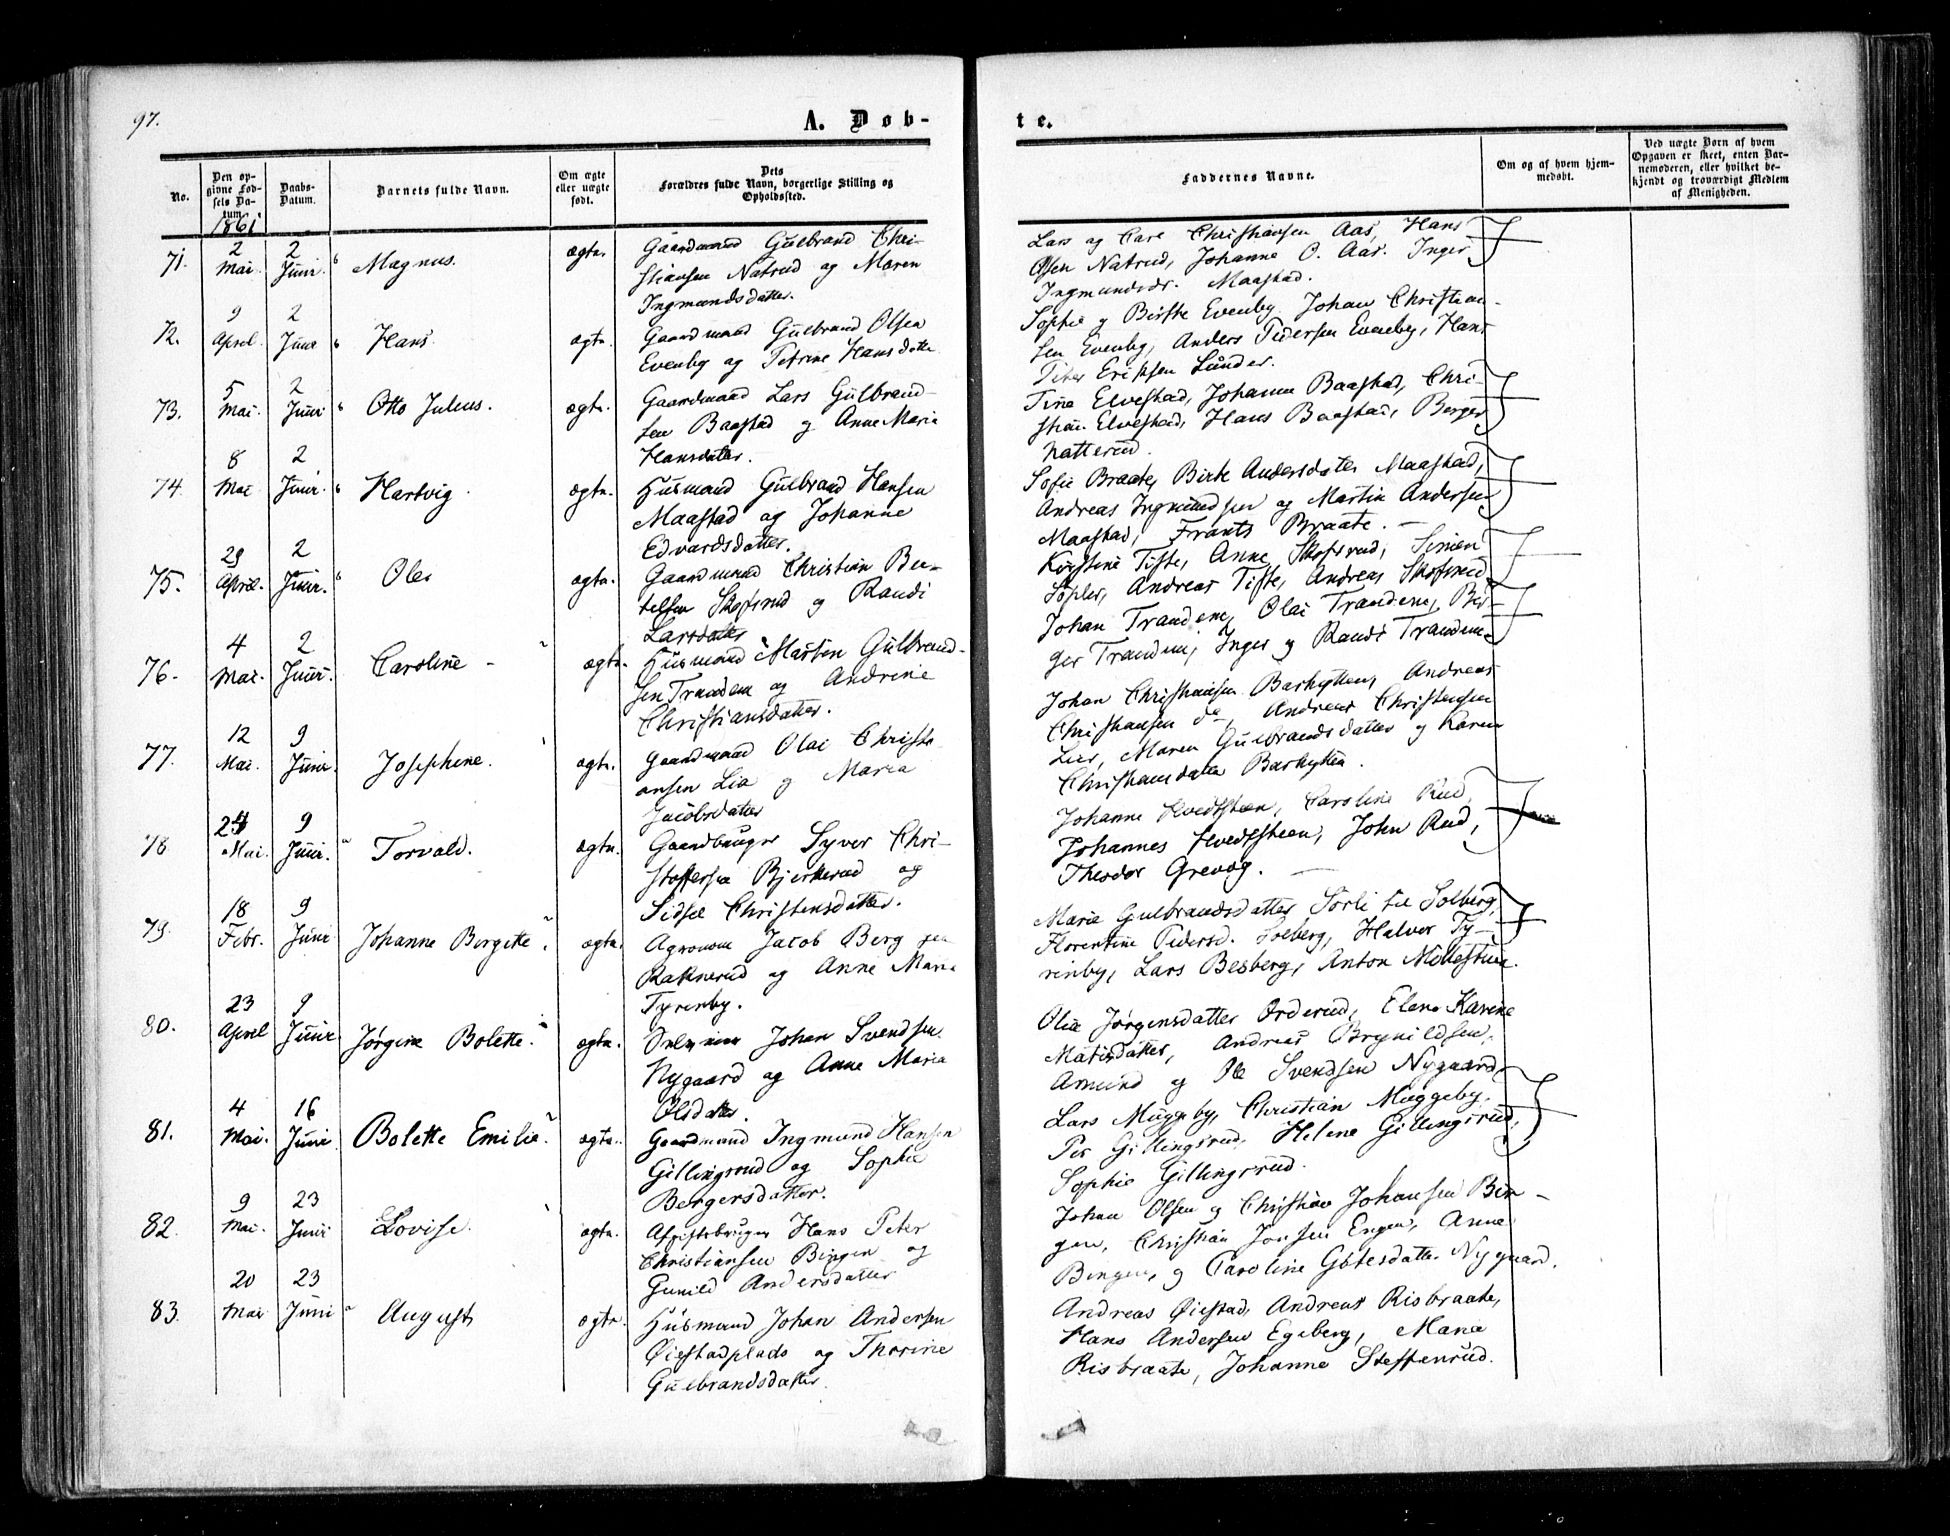 97.
A. Døb-
te.
No.
Den op-
givne Fød-
sels Da-
tum.
Daabs-
Datum.
Barnets fulde Navn.
Om ægte
eller uægte
født.
Dets
Forældres fulde Navn, borgerlige Stilling og
Opholdssted.
Faddernes Navne.
Om og af hvem hjem-
medøbt.
Ved uægte Børn af hvem
Opgaven er skeet, enten Bar-
nemoderen, eller hvilket be-
kjendt og troværdigt Medlem
af Menigheden.
1861
71. 2 Mai. 2 Juni. Magnus. ægte. Gaardmand Gulbrand Chri-
stiansen Natrud og Maren
Ingmundsdatter.
Lars og Care Christiansen Aas, Hans
Olsen Natrud, Johanne O. Aas. Inger
Ingmundsdr. Maastad.
72. 9 April. 2 Juni Hans. ægte. Gaardmand Gulbrand Olsen
Evenby og Petrine Hansdatter
Sophie og Birthe Evenby, Johan Christian-
sen Evenby, Anders Pedersen Evenby, Hans
Peter Eriksen Lunder.
73. 5 Mai. 2 Juni Otto Julius. ægte. Gaardmand Lars Gulbrand-
sen Baastad og Anne Maria
Hansdatter.
Tina Elvestad, Johanne Baastad, Chri-
stian Elvestad, Hans Baastad, Berger
Natterud.
74. 8 Mai 2 Juni. Hartvig. ægte. Husmand Gulbrand Hansen
Maastad og Johanne
Edvardsdatter.
Sofie Braate, Birte Andersdatter Maastad,
Andreas Ingmundsen og Martin Andersen
Maastad, Frants Braate. —
75. 29 April. 2 Juni. Ole. ægte. Gaardmand Christian Ber-
telsen Skofsrud og Randi
Larsdatter
Kirstine Tifte, Anne Skofsrud, Simen
Sopler, Andreas Tifte, Andreas Skofsrud
76. 4 Mai. 2 Juni. Caroline - ægte. Husmand Martin Gulbrand-
sen Trandem og Andrine
Christiansdatter.
Johan Trandem, Olai Trandem, Ber-
ger Trandem, Inger og Randi Trandem
77. 12 Mai. 9 Juni. Josephine. ægte. Gaardmand Olai Christi-
ansen Lia og Maria
Jacobsdatter
Johan Christiansen Barhytten, Andreas
Christiansen do, Andreas Christensen
Lier, Maren Gulbrandsdatter og Karen
Christiansdatter Barhytten.
78 24 Mai. 9 Juni. Torvald. ægte. Gaardbruger Syver Chri-
stoffersen Bjerkerud og
Sidsel Christensdatter.
Johanne Hvedsteen, Caroline Rud,
Johannes Hvedsteen, John Rud,
Theodor Grevog. —
79. 18 Febr. 9 Juni Johanne Bergette. ægte. Agronom Jacob Berg paa
Rakkerud og Anne Maria
Tyrenby.
Marie Gulbrandsdatter Sørli til Solberg,
Florentine Pedersd. Solberg, Halvor Ty-
rinby, Lars Besberg, Anton Mollestuen.
80. 23 April 9 Juni Jørgine Bolette. ægte. Johan Svendsen
Nygaard og Anne Maria
Olsdatter.
Olia Jørgensdatter Orderud, Elene Karine
Matisdatter, Andreas Brynildsen,
Amund og Ole Svendsen Nygaard.
81. 4 Mai. 16 Juni Bolette Emilie. ægte. Gaardmand Ingmund Hansen
Gillingsrud og Sophie
Bergersdatter.
Lars Muggeby, Christian Muggeby,
Per Gillingsrud, Helene Gillingsrud,
Sophie Gillingsrud.
82. 9 Mai. 23 Juni Lovise. ægte. Afgiftsbruger Hans Peter
Christiansen Bingen og
Gunild Andersdatter
Johan Olsen og Christian Johansen Bin-
gen, Christian Jonsen Engen, Anne
Bingen, og Caroline Gotesdatter Nygaard.
83. 20 Mai 23 Juni August ægte. Husmand Johan Andersen
Øiestadplads og Thorine
Gulbrandsdatter.
Andreas Øiestad, Andreas Risbraate,
Hans Andersen Egeberg, Maria
Risbraate, Johanne Steffenrud.